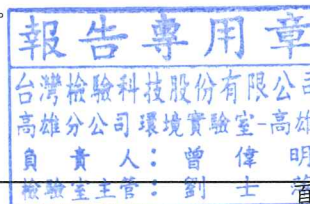 。
報告專用章
台灣檢驗科技股份有限公司
高雄分公司環境實驗室-高雄
負責人：曾偉明
檢驗室主管：劉士